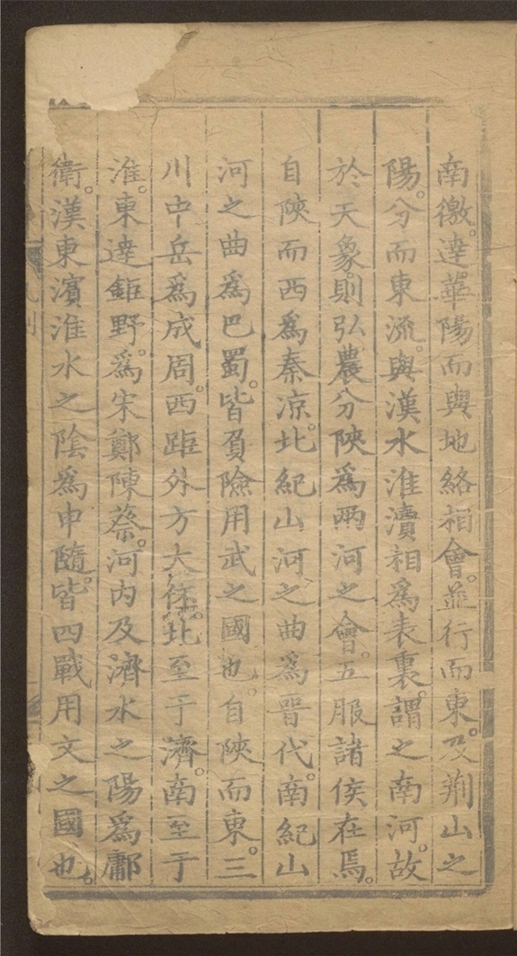 南徼。達華陽而與地絡相會。並行而東。及荆山之
陽。分而東流。與漢水淮瀆相爲表裏。謂之南河。故
於天象。則弘農分陝爲兩河之會。五服諸侯在焉。
自陝而西爲秦凉。北紀山河之曲爲晉代。南紀山
河之曲爲巴蜀。皆負險用武之國也。自陝而東。三
川中岳爲成周。西距外方大伾。北至于濟。南至于
淮。東達鉅野。爲宋鄭陳蔡。河内及濟水之陽爲鄘
衛。漢東濱淮水之陰爲申隨。皆四戰用文之國也。